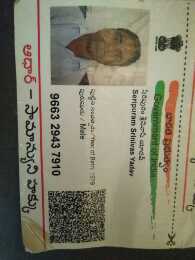 భారత ప్రభుత్వం
Government of India
Seripuram Srinivas Yadav
పుట్టిన సంవత్సరం/Year of Birth: 1979
పురుషుడు / Male
9663 2943 7910
ఆధార్ - సామాన్యుని హక్కు